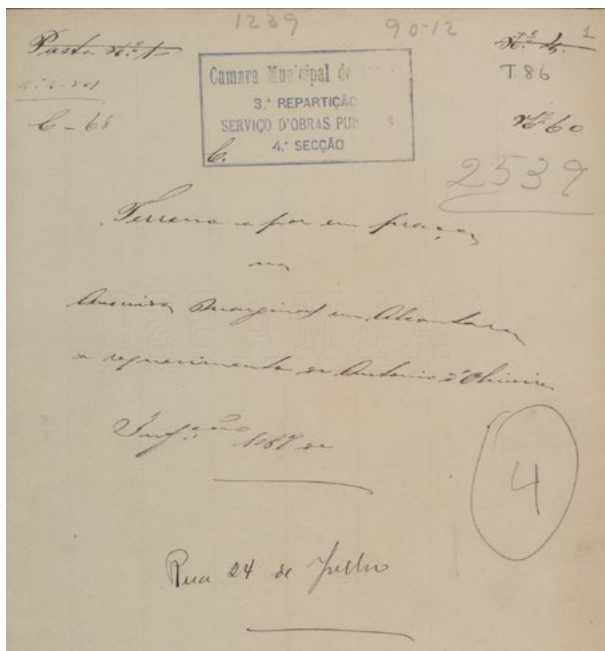 1239 90-12 1
Pasta Nº 1 Nº 4.
T. 86
C-65 Nº 60
Camara Municipal de
3.ª REPARTIÇÃO
SERVIÇO D'OBRAS PUB
C. 4.ª SECÇÃO
2539
Terreno a por em praça
na
Avenida Marginal em Alcantara
a requerimento de Antonio d'Oliveira
Inf.ção 1087 de
4
Rua 24 de Julho